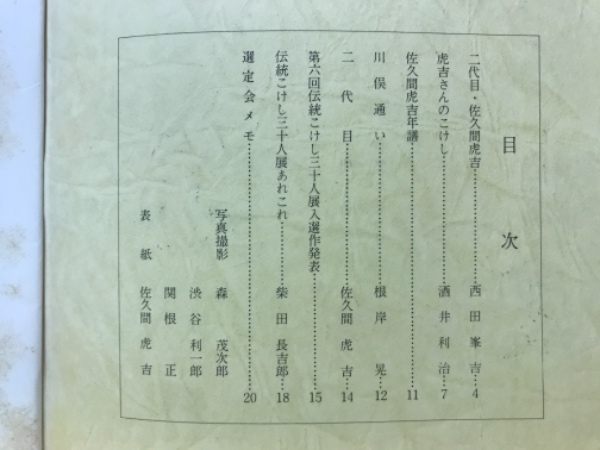 目次
二代目・佐久間虎吉……西田峯吉…4
虎吉さんのこけし……酒井利治…7
佐久間虎吉年譜……11
川俣通い……根岸晃…12
二代目……佐久間虎吉…14
第六回伝統こけし三十人展入選作発表……15
伝統こけし三十人展あれこれ……柴田長吉郎…18
選定会メモ……20
写真撮影 森茂次郎
渋谷利一郎
関根正
表紙 佐久間虎吉